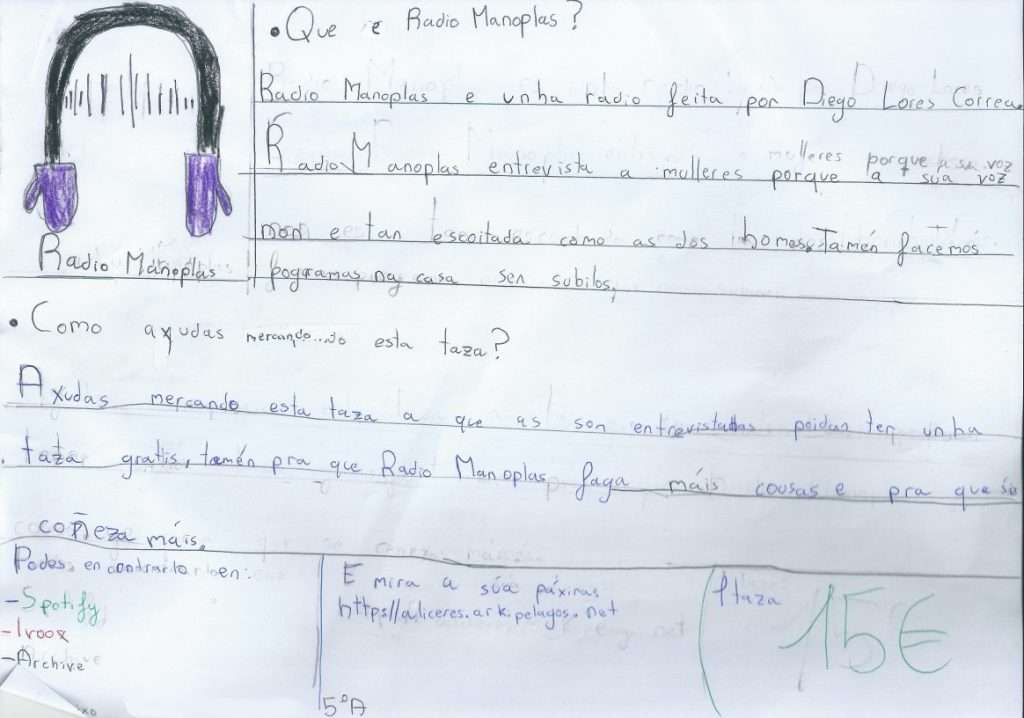 • Que e Radio Manoplas?
Radio Manoplas e unha radio feita por Diego Lores Correa.
mulleres porque a sa voz
Radio Manoplas entrevista a mulleres porque a súa voz
non e tan escoitada como as dos homes. Tamén facemos
pogramas na casa sen subilos.
Radio Manoplas
• Como axudas mercando esta taza?
Axudas mercando esta taza a que as son entrevistadas poidan ter unha
taza gratis, tamén pra que Radio Manoplas faga máis cousas e pra que se
coñeza máis.
Podes encontrarlo en:
-Spotify
-Ivoox
-Archive
E mira a súa páxina
https//aliceres.arkipelagos.net
5ºA
1 taza 15€